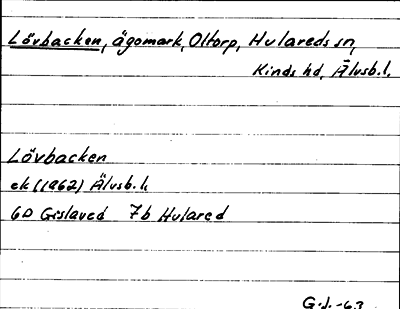 Lövbacken, ägomark, Oltorp, Hulareds sn,
Kinds hd, Älvsb.l.
Lövbacken
ek (1962) Älvsb.l.
6D Gislaved 7b Hulared
G.J.-63